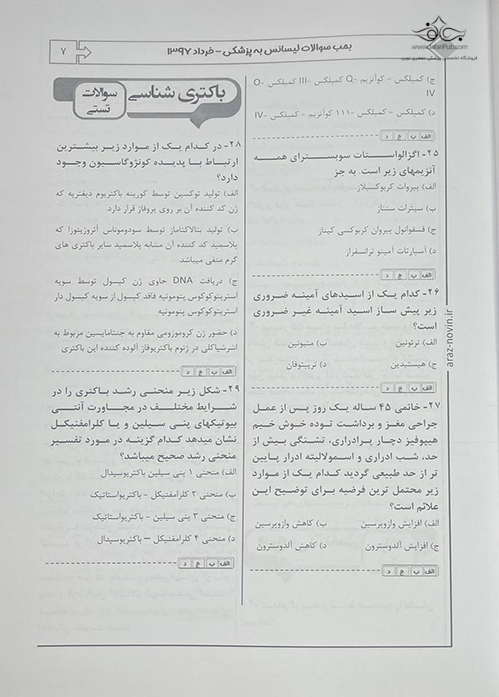 www.JafariPub.com
فروشگاه تخصصی پزشکی جعفری نوین
بمب سوالات لیسانس به پزشکی - خرداد ۱۳۹۷
۷
ج) کمپلکس - کوآنزیم Q- کمپلکس III- کمپلکس O-
IV
د) کمپلکس - ۱۱۱ کوآنزیم - کمپلکس - IV
الف ب ج د
۲۵- اگزالواستات سوبسترای همه
آنزیمهای زیر است. به جز
الف) پیروات کربوکسیلاز
ب) سیترات سنتاز
ج) فسفوانول پیروان کربوکسی کیناز
د) آسپارتات آمینو ترانسفراز
الف ب ج د
۲۶- کدام یک از اسیدهای آمینه ضروری
زیر پیش ساز اسید آمینه غیر ضروری
است؟
الف) ترئونین
ب) متیونین
ج) هیستدین
د) تریپتوفان
الف ب ج د
۲۷- خانمی ۴۵ ساله یک روز پس از عمل
جراحی مغز و برداشت توده خوش خیم
هیپوفیز دچار پرادراری، تشنگی بیش از
حد، شب ادراری و اسمولالیته ادرار پایین
تر از حد طبیعی گردید کدام یک از موارد
زیر محتمل ترین فرضیه برای توضیح این
علائم است؟
الف) افزایش وازوپرسین
ب) کاهش وازوپرسین
ج) افزایش آلدوسترون
د) کاهش آلدوسترون
الف ب ج د
araz-novin.ir
باکتری شناسی
سوالات
تستی
۲۸- در کدام یک از موارد زیر بیشترین
ارتباط با پدیده کونژوگاسیون وجود
دارد؟
الف) تولید توکسین توسط کورینه باکتریوم دیفتریه که
ژن کد کننده آن بر روی پروفاژ قرار دارد.
ب) تولید بتالاکتاماز توسط سودوموناس آئروژینوزا که
پلاسمید کد کننده آن مشابه پلاسمید سایر باکتری های
گرم منفی میباشد.
ج) دریافت DNA حاوی ژن کپسول توسط سویه
استرپتوکوکوس پنومونیه فاقد کپسول از سویه کپسول دار
استرپتوکوکوس پنومونیه
د) حضور ژن کروموزومی مقاوم به جنتامایسین مربوط به
اشرشیاکلی در ژنوم باکتریوفاژ آلوده کننده این باکتری
الف ب ج د
۲۹- شکل زیر منحنی رشد باکتری را در
شرایط مختلف در مجاورت آنتی
بیوتیکهای پنی سیلین و یا کلرامفنیکل
نشان میدهد کدام گزینه در مورد تفسیر
منحنی رشد صحیح میباشد؟
الف) منحنی ۱ پنی سیلین باکتریوسیدال
ب) منحنی ۲ کلرامفنیکل - باکتریواستاتیک
ج) منحنی ۳ پنی سیلین - باکتریواستاتیک
د) منحنی ۴ کلرامفنیکل – باکتریوسیدال
الف ب ج د